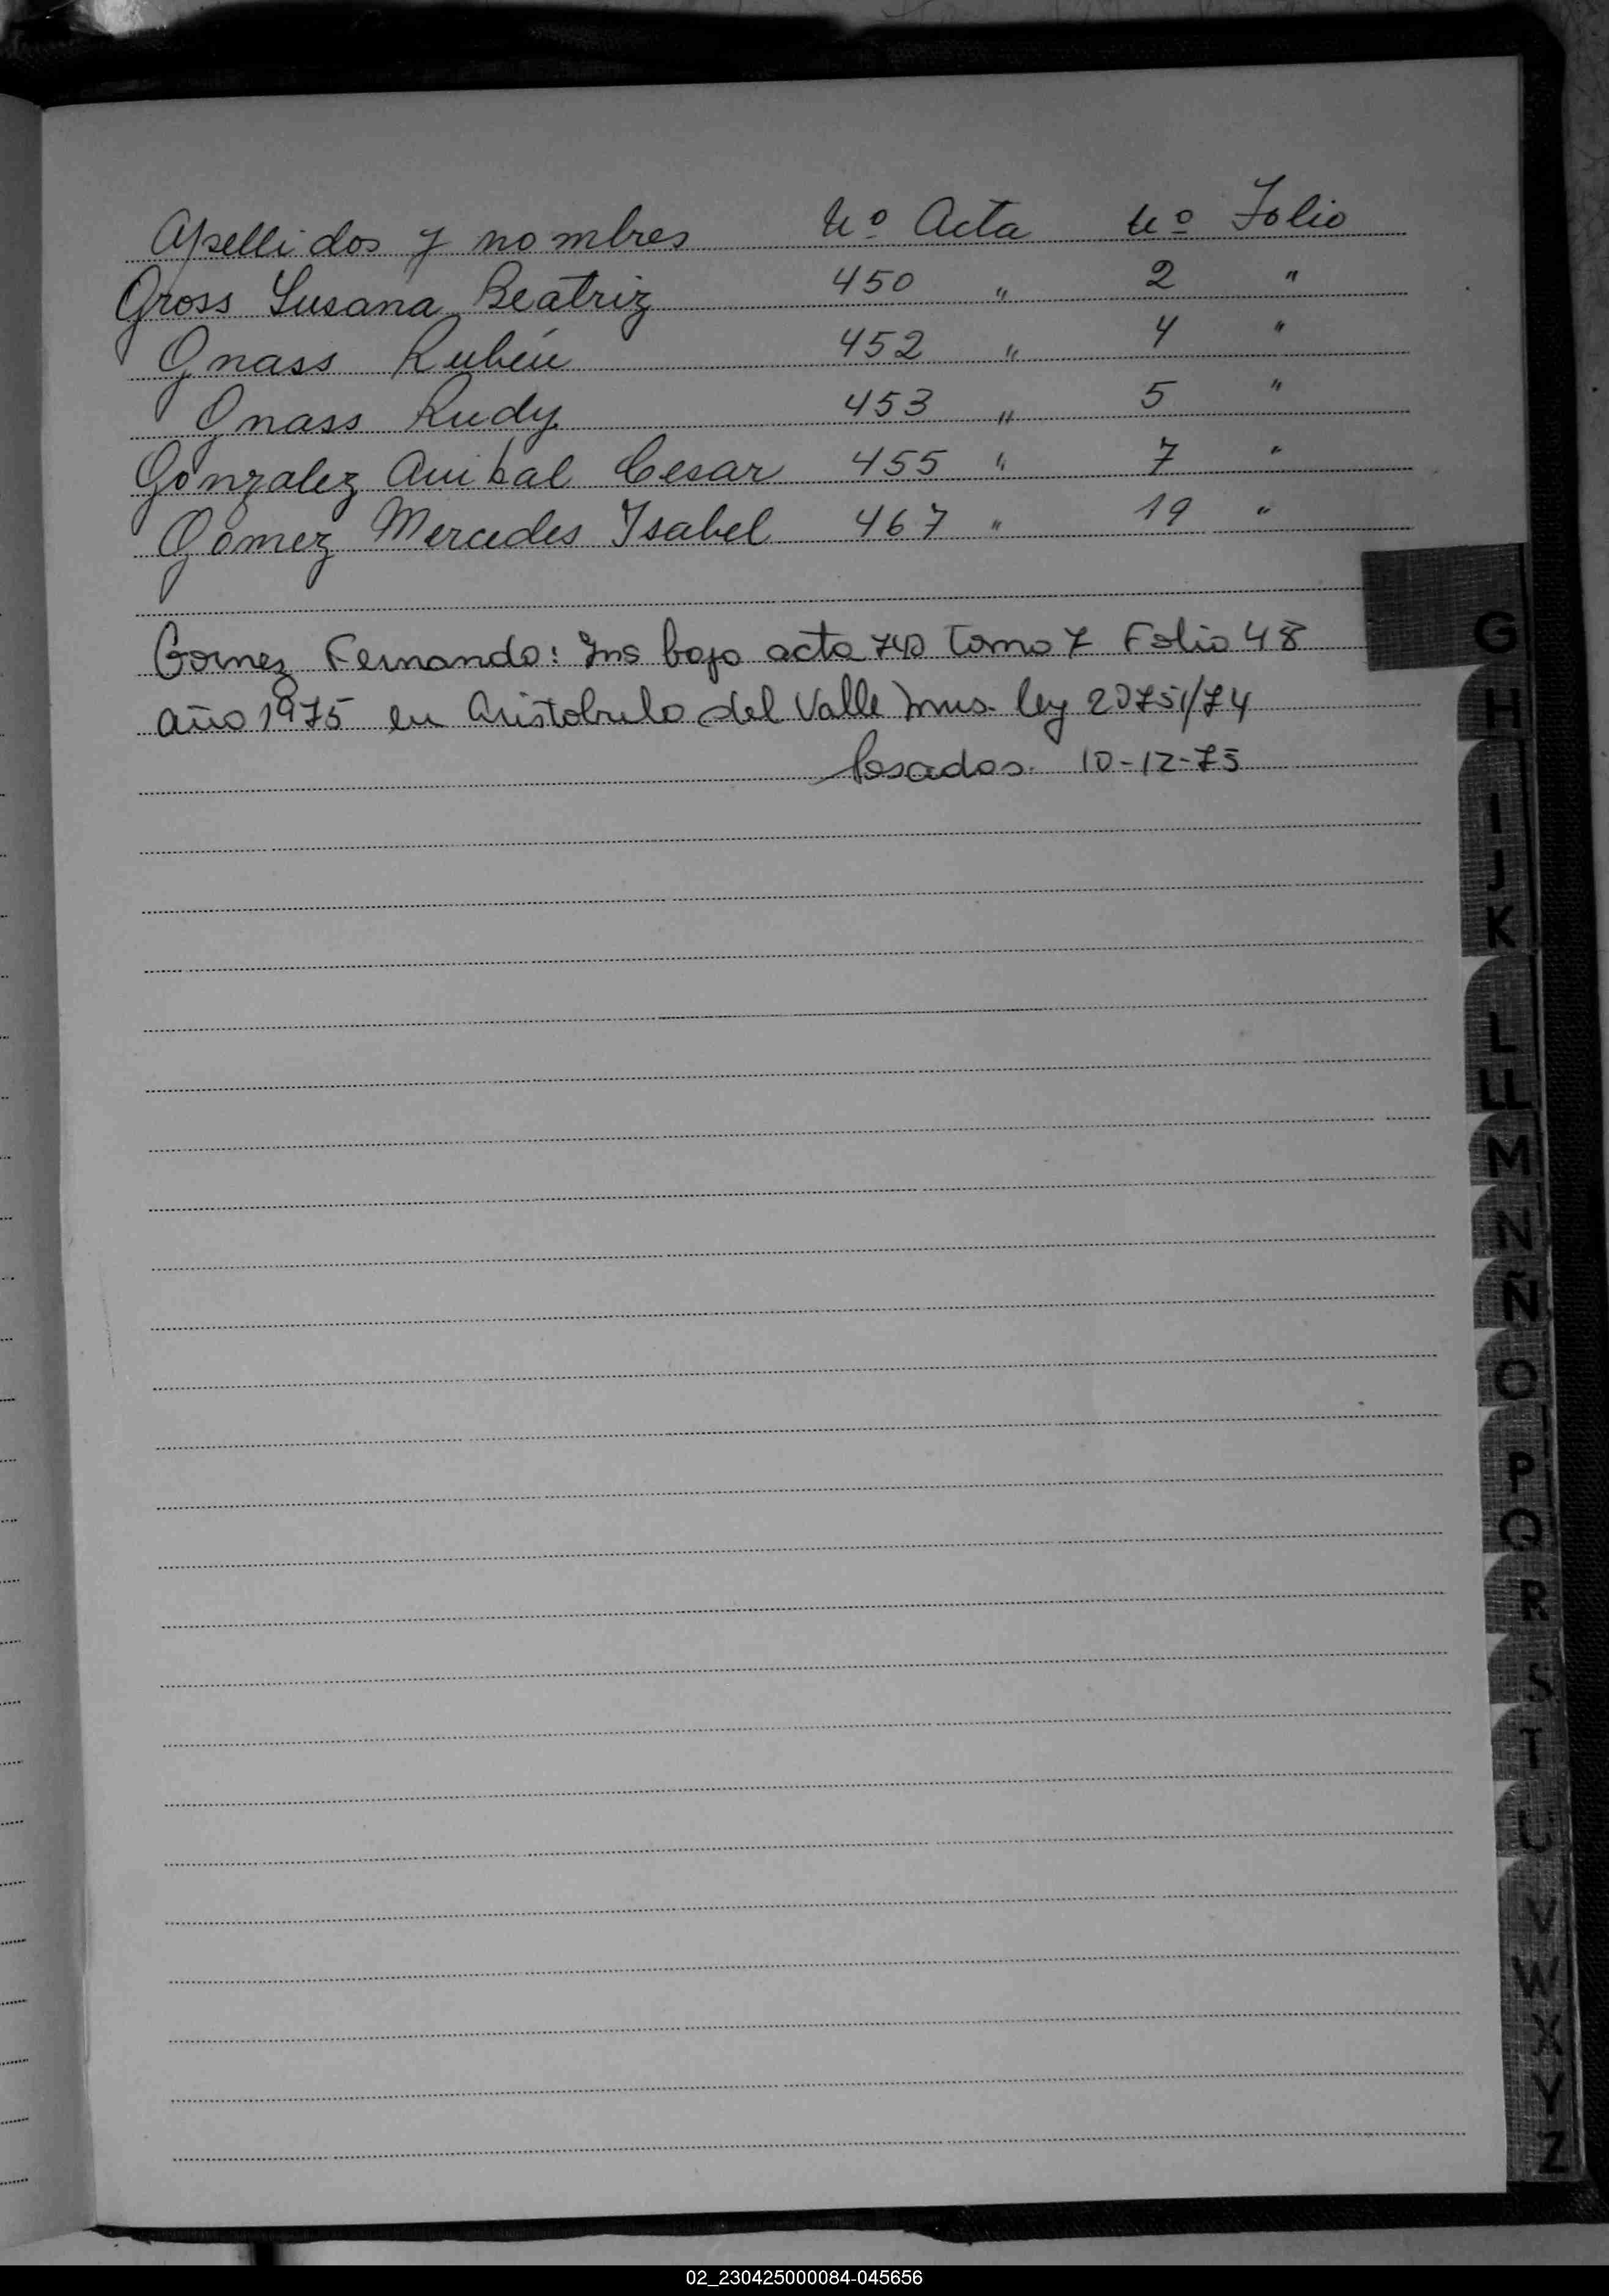 Apellidos y nombres Nº Acta Nº Folio
Gross Susana Beatriz 450 " 2 "
Gnass Rubén 452 " 4 "
Gnass Rudy 453 " 5 "
Gonzalez Anibal Cesar 455 " 7 "
Gomez Mercedes Isabel 467 " 19 "
Gomez Fernando: Ins bajo acta 740 Tomo 7 Folio 48
año 1975 en Aristobulo del Valle Mnes. ley 20751/74
Posadas. 10-12-75
G
H
I
J
K
L
LL
M
N
Ñ
O
P
Q
R
S
T
U
V
W
X
Y
Z
02_230425000084-045656